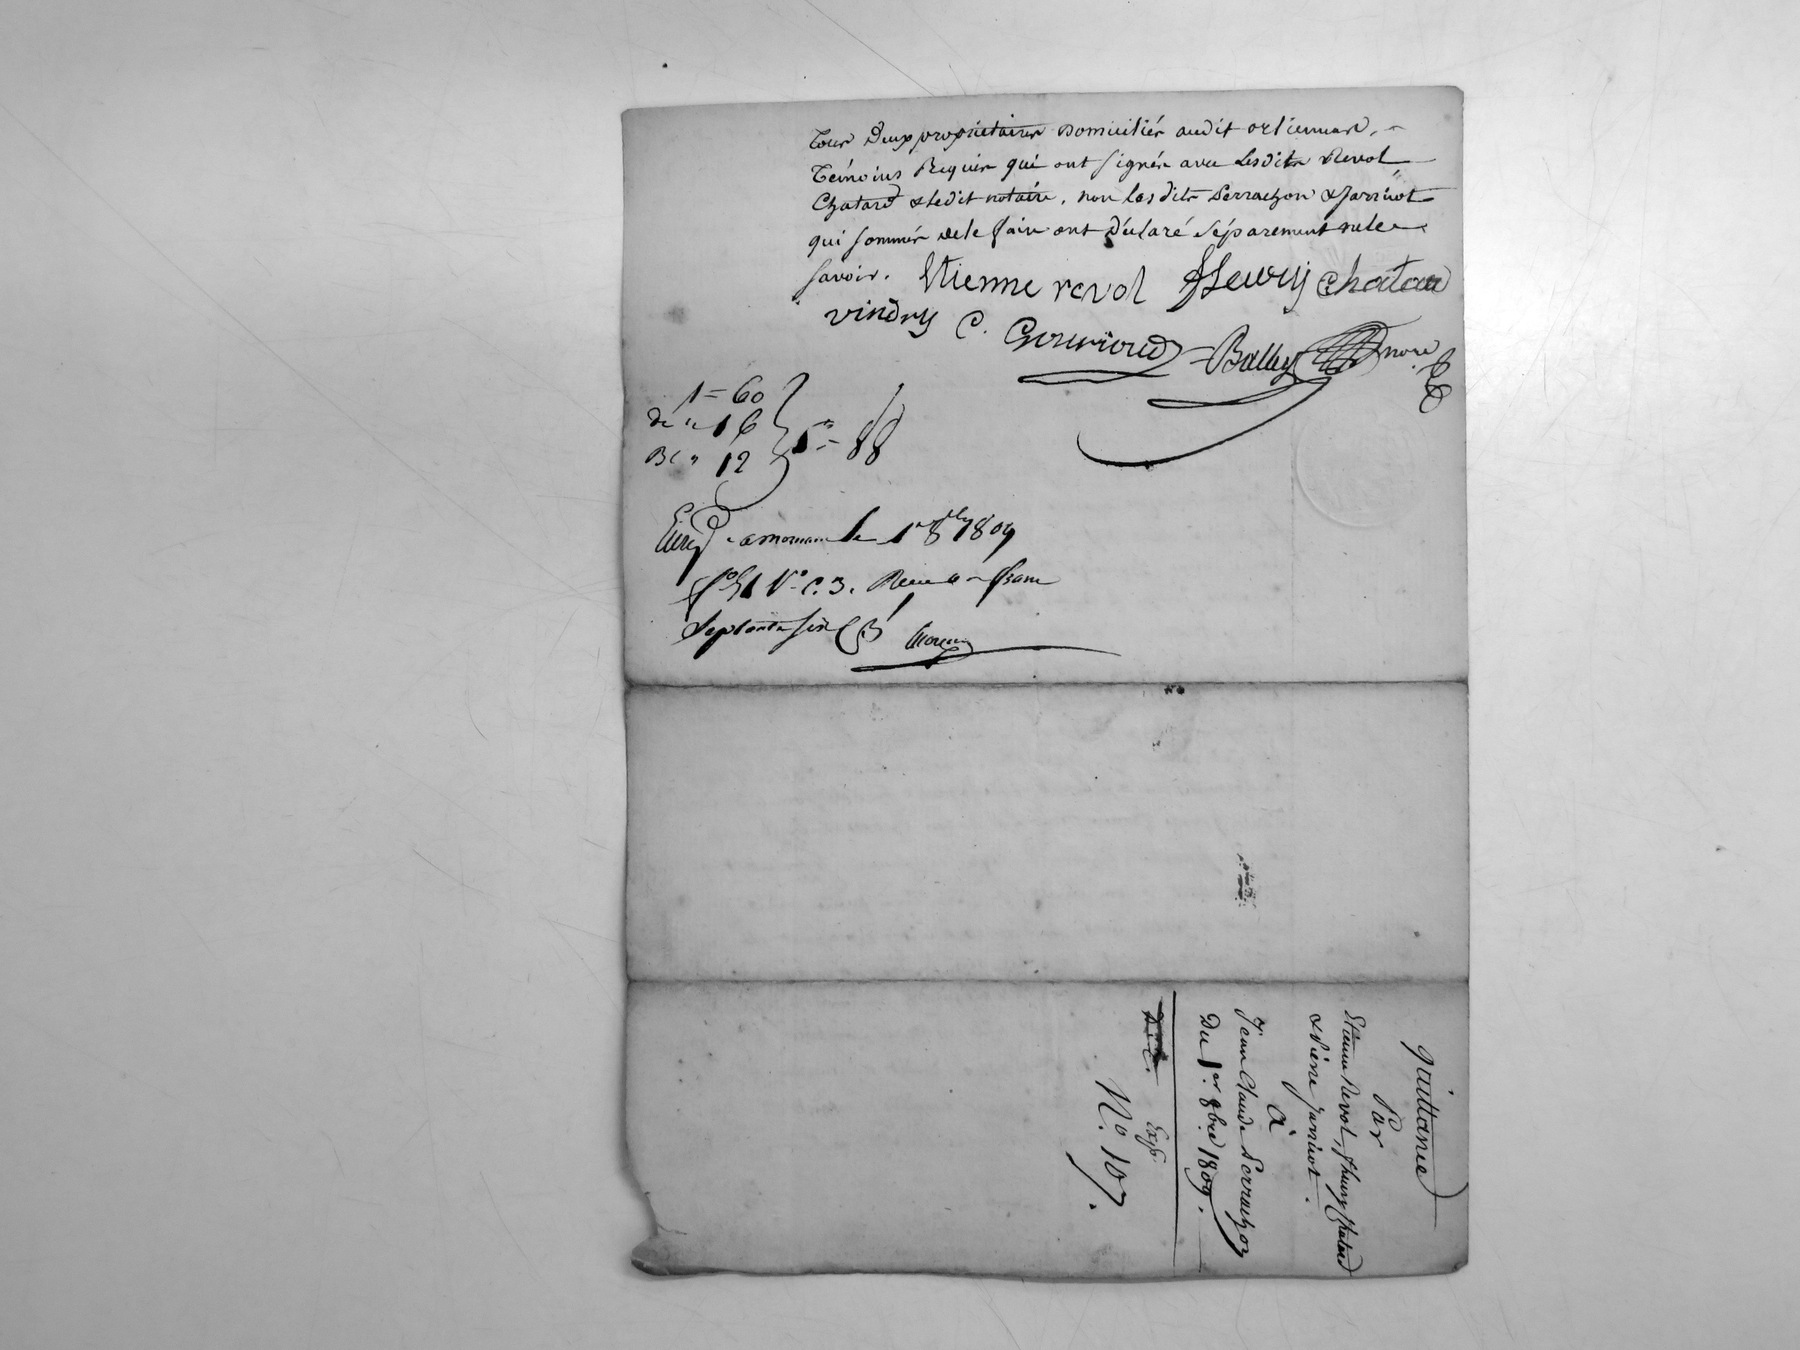 tous deux propriétaires domiciliés audit orliennard,
témoins Requis qui ont signés avec lesdits Revol
Chatard & ledit notaire, non lesdits Perrachon & Jarricot
qui sommés de le faire ont déclaré séparement ne le
savoir.
Etienne revol fleury chatard
vindry C. Gourioud Balley nore
1 = 60
dé " 16
Bt " 12
1 = 88
Enregé a mornant le 1er 8bre 1809
fo 51 Vo C. 3. Reçu un franc
Septante six
quittance
Par
Etienne Revol, fleury Chatard
& Pierre Jarricot.
à
Jean Claude Perrachon
Du 1er 8bre 1809.
Exp.
No. 107.